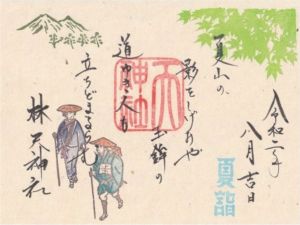 夏山の
影をしげみや
玉鉾の
道ゆき人も
立ちどまるらむ
令和二年
八月吉日
夏詣
神社